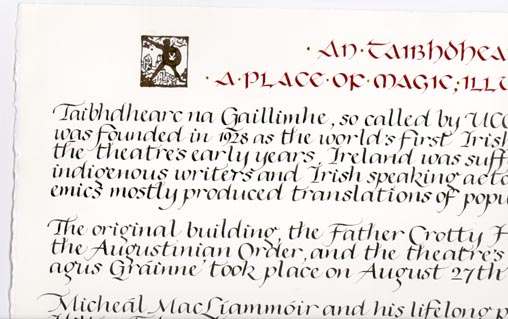 ·An·Taibhdhea
·A·PLACE·OF·MAGIC;ILLU
Taibhdhearc na Gaillimhe, so called by UCG
was founded in 1928 as the world's first Irish
the theatre's early years, Ireland was suff
indigenous writers and Irish speaking acto
emics mostly produced translations of popu
The original building, the Father Crotty H
the Augustinian Order, and the theatre's
agus Gráinne' took place on August 27th
Micheál MacLíammóir and his lifelong p